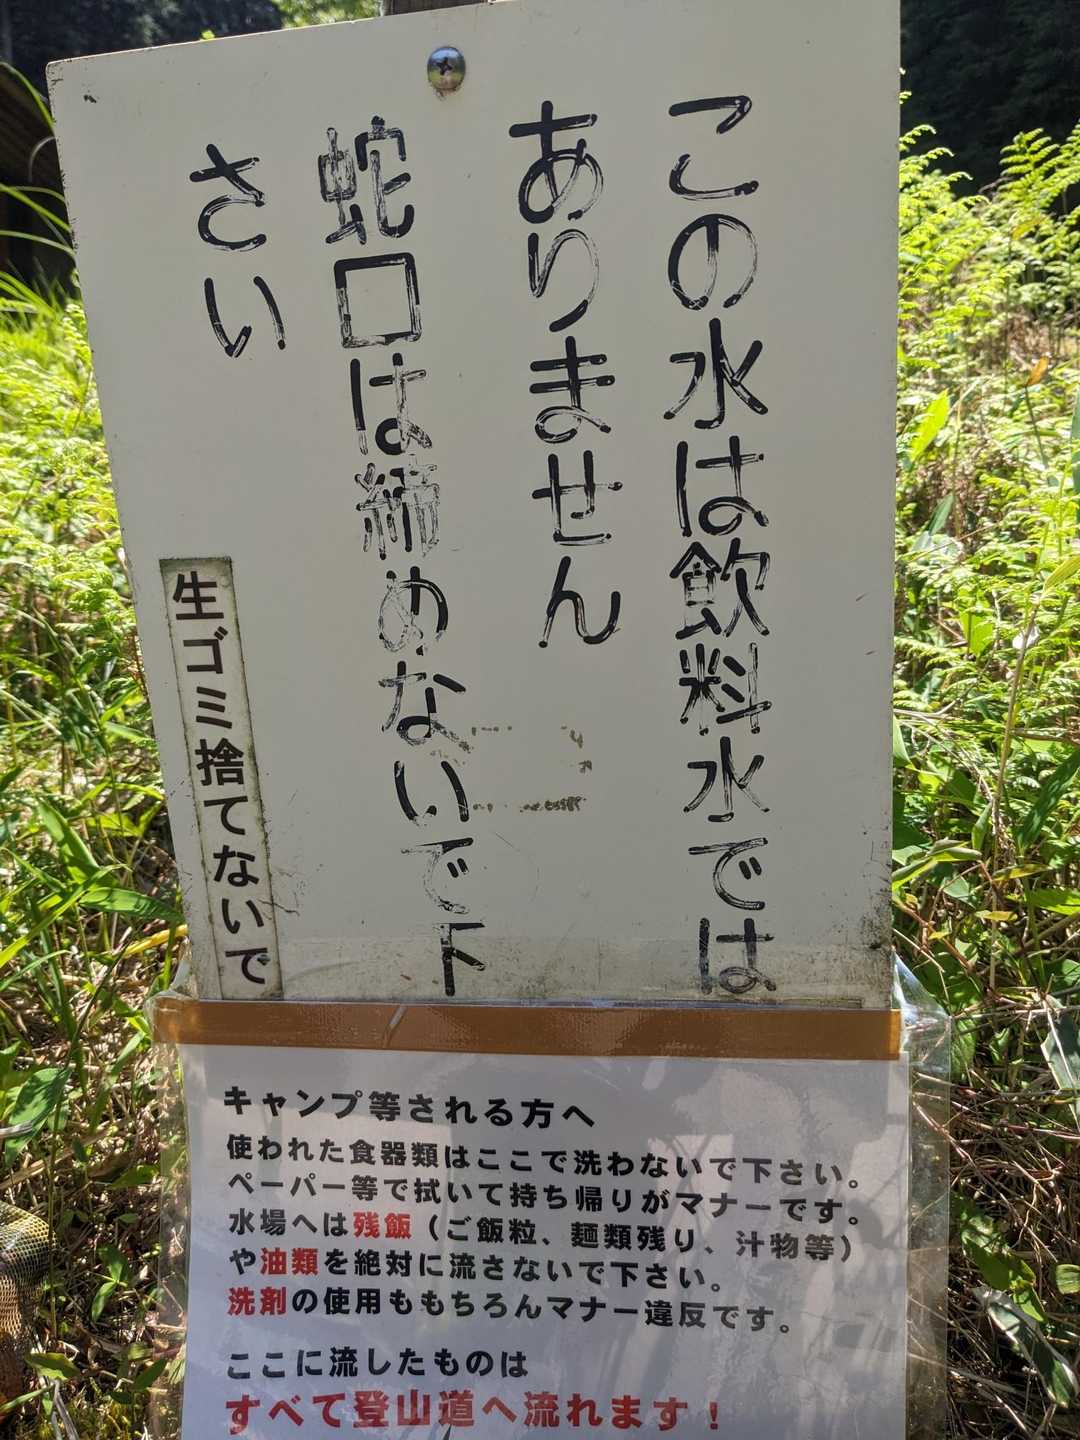 この水は飲料水では
ありません
蛇口は締めないで下
さい
生ゴミ捨てないで
キャンプ等される方へ
使われた食器類はここで洗わないで下さい。
ペーパー等で拭いて持ち帰りがマナーです。
水場へは残飯（ご飯粒、麺類残り、汁物等）
や油類を絶対に流さないで下さい。
洗剤の使用ももちろんマナー違反です。
ここに流したものは
すべて登山道へ流れます！